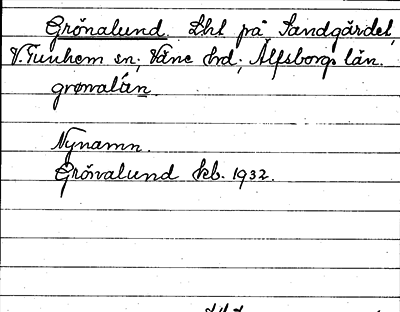 Grönalund. Lht på Sandgärdet,
V. Tunhem sn; Väne hd; Älfsborgs län.
grønalán.
Nynamn.
Grönalund kb. 1932.